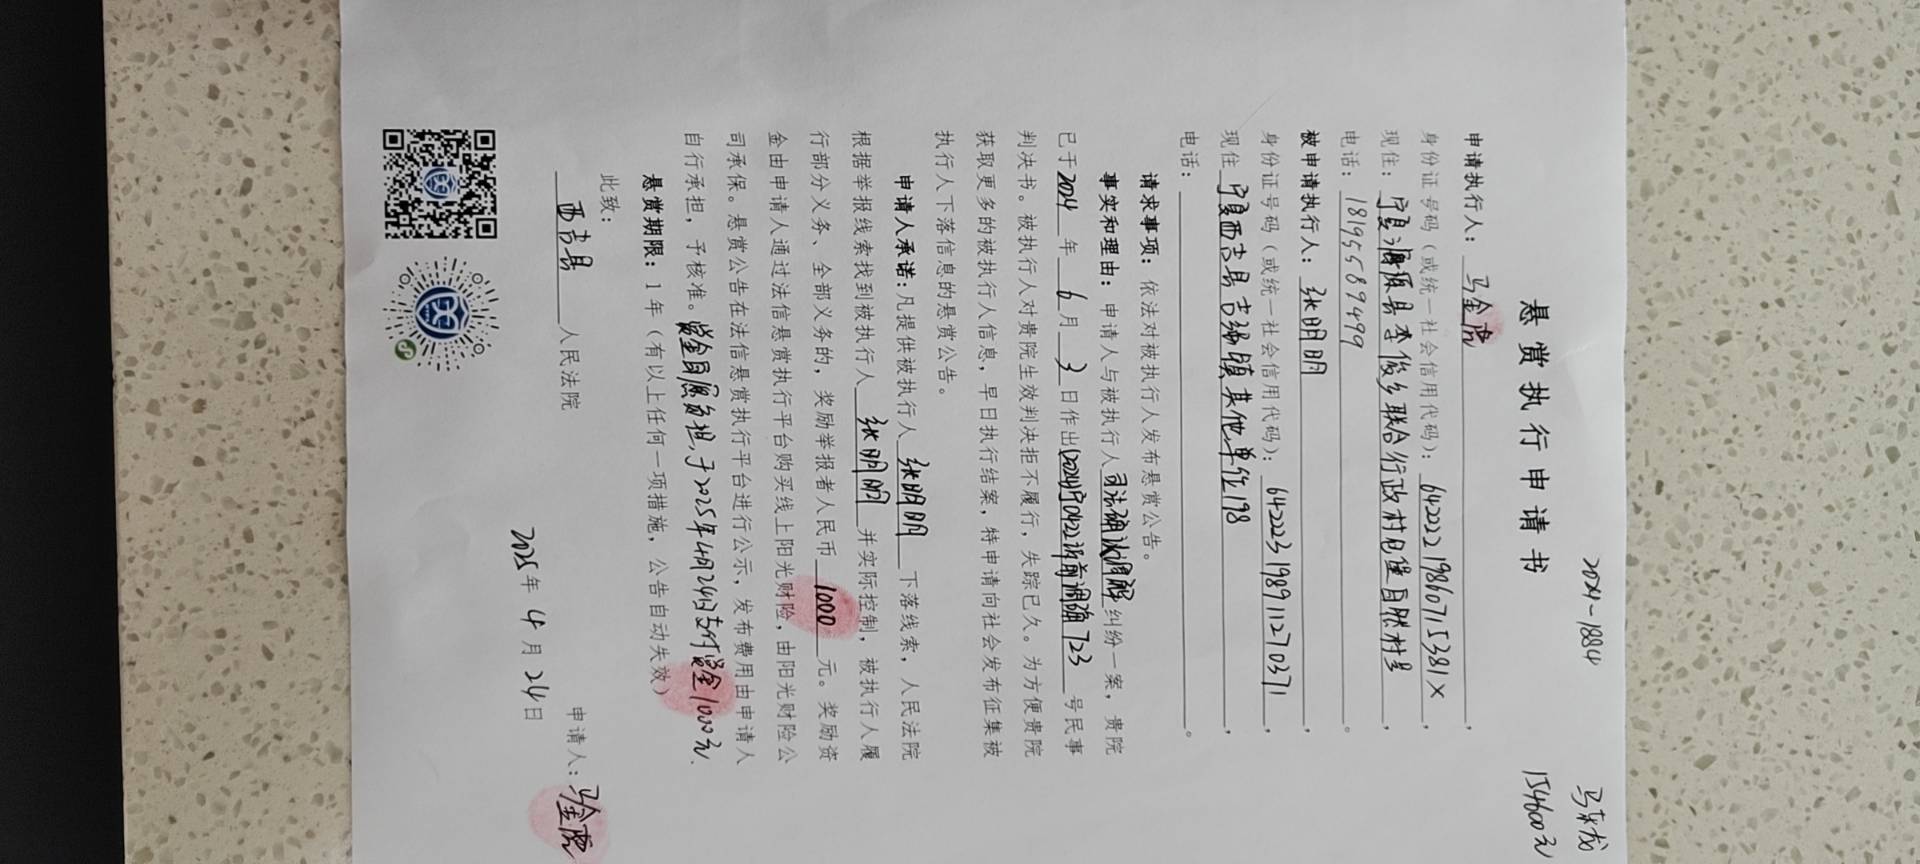 2024-1884
马东成
154600元
悬赏执行申请书
申请执行人：马金虎，
身份证号码（或统一社会信用代码）：64222219860715381X，
现住：宁夏海原县李俊乡联合行政村，
电话：18195589499。
被申请执行人：张明明，
身份证号码（或统一社会信用代码）：642223198911270371，
现住宁夏西吉县吉强镇其他单位198，
电话：。
请求事项：依法对被执行人发布悬赏公告。
事实和理由：申请人与被执行人司法确认调解纠纷一案，贵院
已于2024年6月3日作出(2024)宁0422诉前调确723号民事
判决书。被执行人对贵院生效判决拒不履行，失踪已久。为方便贵院
获取更多的被执行人信息，早日执行结案，特申请向社会发布征集被
执行人下落信息的悬赏公告。
申请人承诺：凡提供被执行人张明明下落线索，人民法院
根据举报线索找到被执行人张明明并实际控制，被执行人履
行部分义务、全部义务的，奖励举报者人民币1000元。奖励资
金由申请人通过法信悬赏执行平台购买线上阳光财险，由阳光财险公
司承保。悬赏公告在法信悬赏执行平台进行公示，发布费用由申请人
自行承担，予核准。赏金自愿负担，于2025年4月24日支付赏金1000元.
悬赏期限：1年（有以上任何一项措施，公告自动失效）
此致：
西吉县人民法院
申请人：马金虎
2025年4月24日